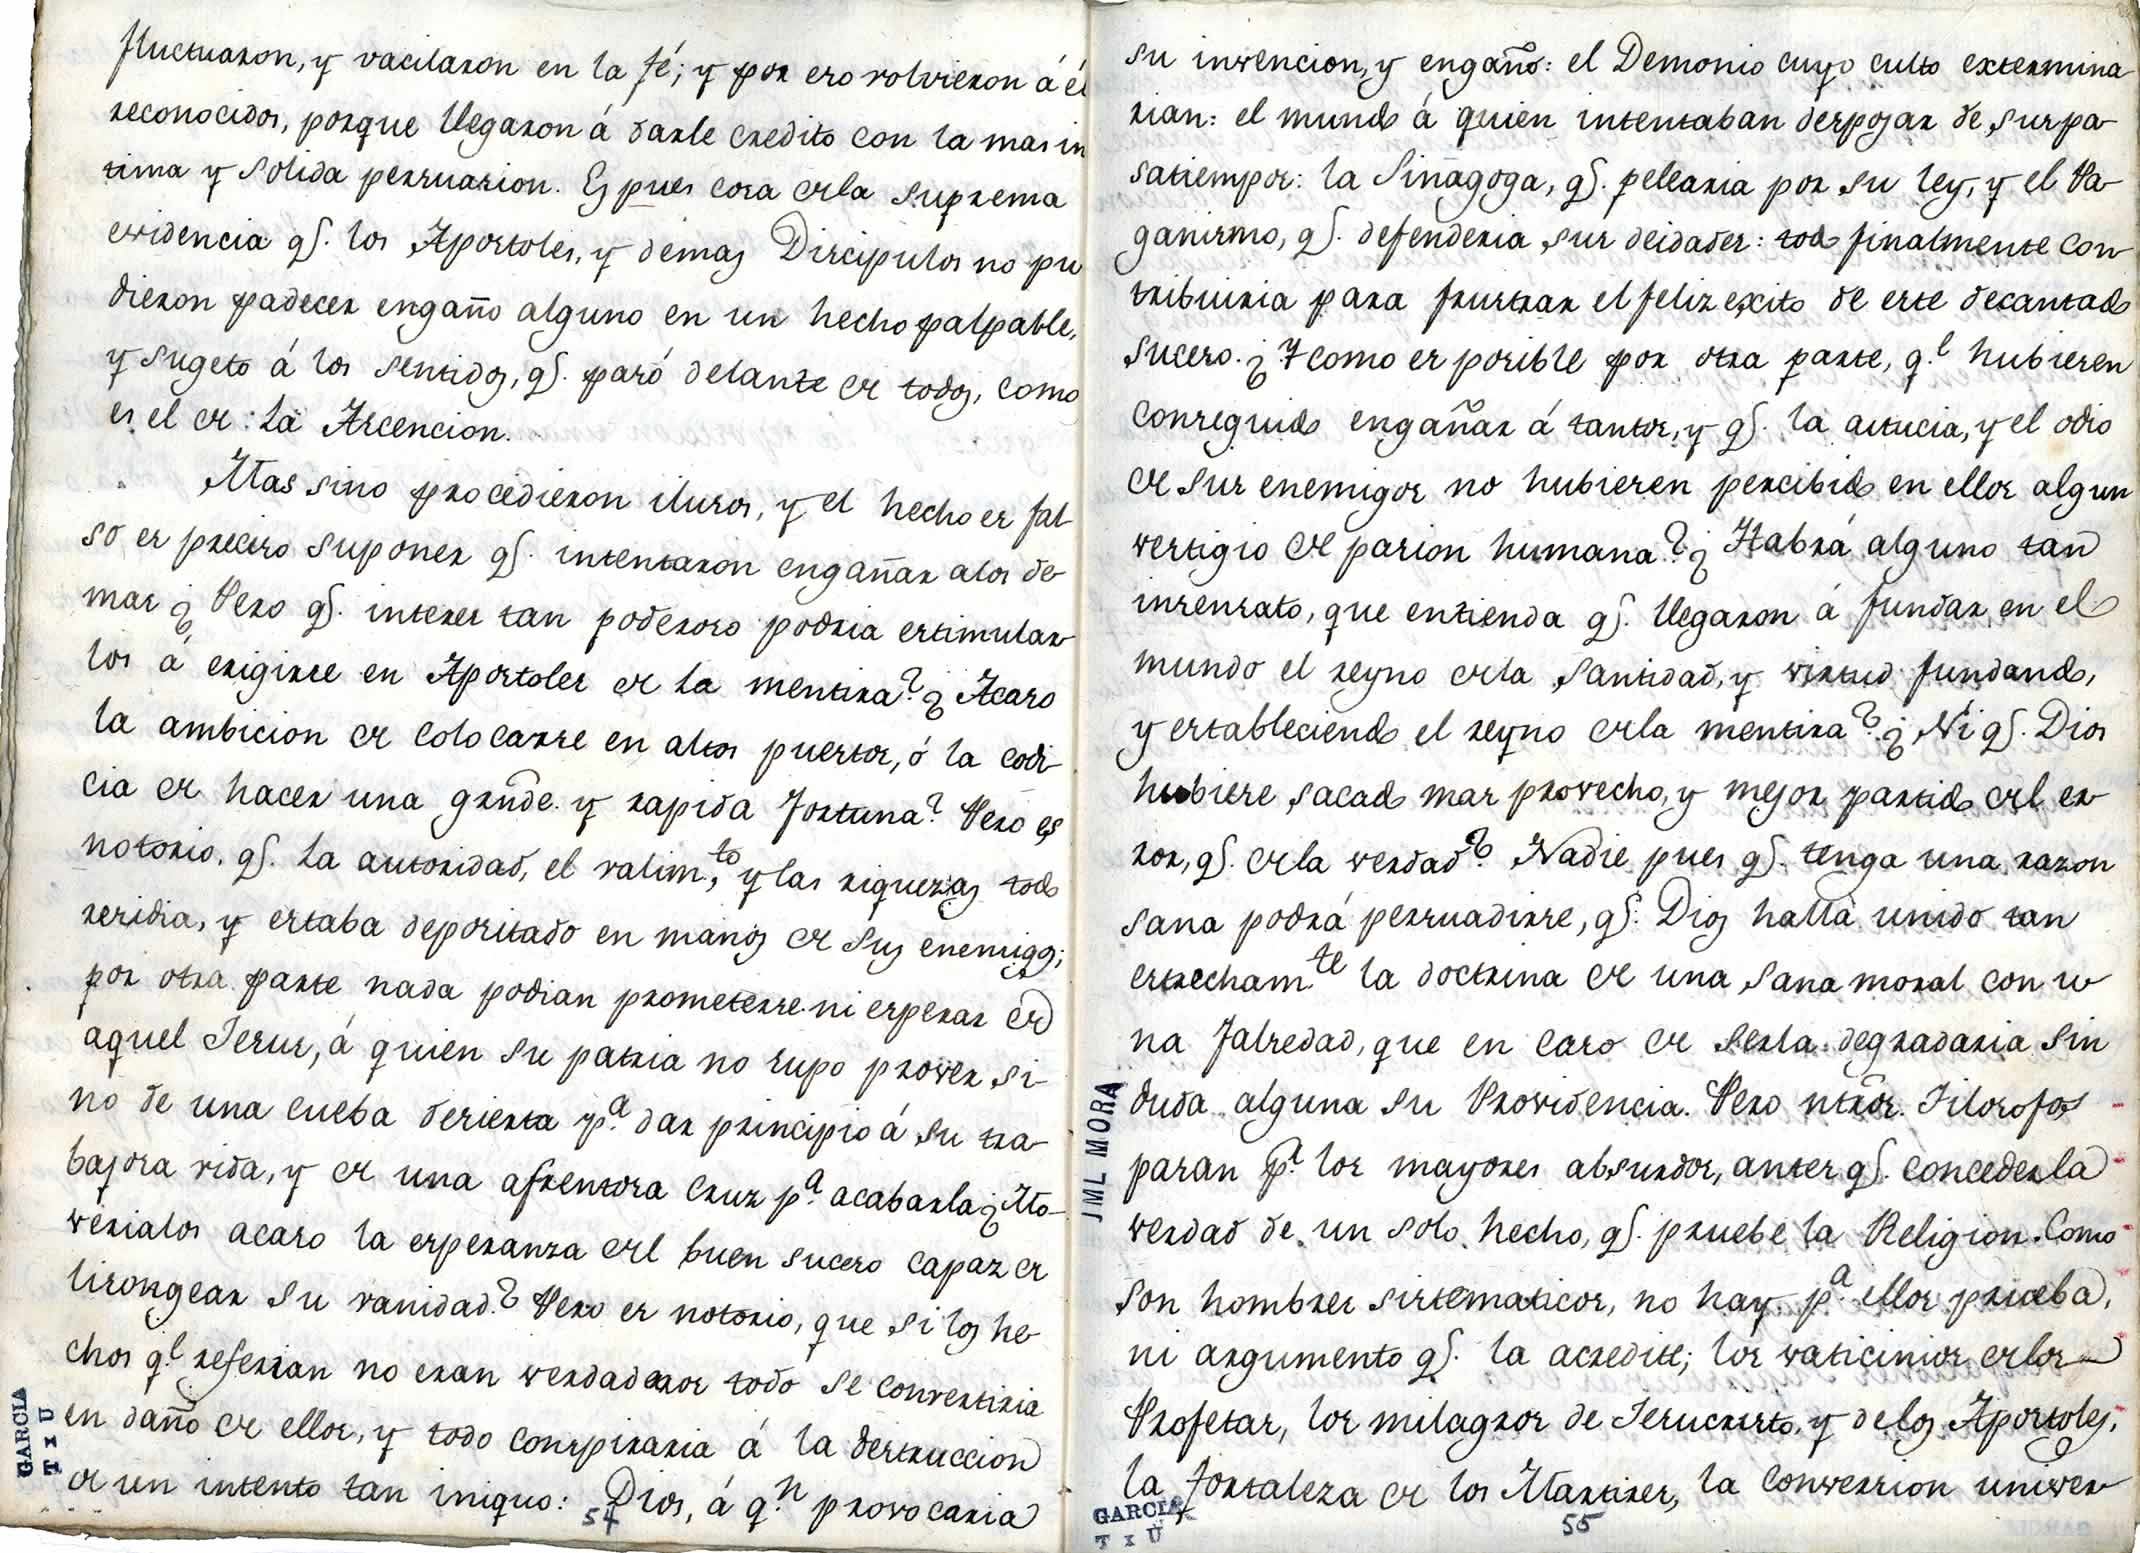 fluctuaron, y vacilaron en la fé; y por eso volvieron á él
reconocidos, porque llegaron á darle credito con la mas in
tima y solida persuasion. Es pues cosa de la suprema
evidencia q.e los Apostoles, y demas Discipulos no pu
dieron padecer engaño alguno en un hecho palpable,
y sugeto á los sentidos, q.e pasó delante de todos, como
es el de la Ascencion.
Mas sino procedieron ilusos, y el hecho es fal
so es preciso suponer q.e intentaron engañar alos de
mas ¿Pero q.e interes tan poderoso podria estimular
los á erigirse en Apostoles de la mentira? ¿Acaso
la ambicion de colocarse en altos puestos, ó la codi
cia de hacer una grñde. y rapida fortuna? Pero es
notorio, q.e la autoridad, el valim.to, y las riquezas todo
residia, y estaba depositado en manos de sus enemigos;
por otra parte nada podian prometerse ni esperar de
aquel Jesus, á quien su patria no supo prover si-
no de una cueba desierta p.a dar principio á su tra-
bajosa vida, y de una afrentosa cruz p.a acabarla ¿Mo-
verialos acaso la esperanza del buen suceso capaz de
lisongear su vanidad? Pero es notorio, que si los he-
chos q.e referian no eran verdaderos todo se convertiria
en daño de ellos, y todo conspiraria á la destruccion
de un intento tan iniquo: Dios, á q.n provocaria
54
GARCIA
T x U
su invencion, y engaño: el Demonio cuyo culto extermina
rian: el mundo á quien intentaban despojar de sus pa
satiempos: la Sinagoga, q.e pelearia por su ley, y el Pa-
ganismo, q.e defenderia sus deidades: todo finalmente con
tribuiria para frustrar el feliz exito de este decantado
suceso. ¿Y como es posible por otra parte, q.e hubiesen
conseguido engañar á tantos, y q.e la astucia, y el odio
de sus enemigos no hubiesen percibido en ellos algun
vestigio de pasion humana? ¿Habrá alguno tan
insensato, que entienda q.e llegaron á fundar en el
mundo el reyno de la santidad, y virtud fundando,
y estableciendo el reyno de la mentira? ¿Ni q.e Dios
hubiese sacado mas provecho, y mejor partido del er
ror, q.e de la verdad? Nadie pues q.e tenga una razon
sana podrá persuadirse, q.e Dios halla unido tan
estrecham.te la doctrina de una sana moral con u
na falsedad, que en caso de serla degradaria sin
duda alguna su Providencia. Pero ntros. Filosofos
pasan p.r los mayores absurdos, antes q.e conceder la
verdad de un solo hecho, q.e pruebe la Religion. Como
son hombres sistematicos, no hay p.a ellos prueba,
ni argumento q.e la acredite; los vaticinios de los
Profetas, los milagros de Jesucristo, y de los Apostoles,
la fortaleza de los Martires, la conversion univer
55
JML MORA
GARCIA
T x U